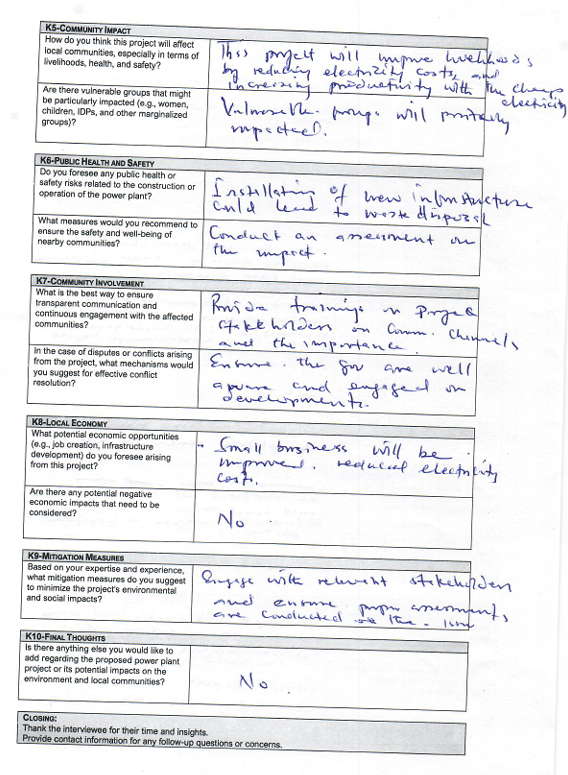 K5-COMMUNITY IMPACT
How do you think this project will affect
local communities, especially in terms of
livelihoods, health, and safety?
This project will improve livelihoods
by reducing electricity costs and
increasing productivity with the cheap
electricity
Are there vulnerable groups that might
be particularly impacted (e.g., women,
children, IDPs, and other marginalized
groups)?
Vulnerable groups will positively
impacted.
K6-PUBLIC HEALTH AND SAFETY
Do you foresee any public health or
safety risks related to the construction or
operation of the power plant?
Installation of new infrastructure
could lead to waste disposal
What measures would you recommend to
ensure the safety and well-being of
nearby communities?
Conduct an assessment on
the impact.
K7-COMMUNITY INVOLVEMENT
What is the best way to ensure
transparent communication and
continuous engagement with the affected
communities?
Provide trainings on Project
stakeholders on Comm. Channels
and the importance.
In the case of disputes or conflicts arising
from the project, what mechanisms would
you suggest for effective conflict
resolution?
Ensure the gov are well
aware and engaged on
developments.
K8-LOCAL ECONOMY
What potential economic opportunities
(e.g., job creation, infrastructure
development) do you foresee arising
from this project?
- Small business will be
improved. reduced electricity
costs.
Are there any potential negative
economic impacts that need to be
considered?
No.
K9-MITIGATION MEASURES
Based on your expertise and experience,
what mitigation measures do you suggest
to minimize the project's environmental
and social impacts?
Engage with relevant stakeholders
and ensure proper assessments
are conducted on the
K10-FINAL THOUGHTS
Is there anything else you would like to
add regarding the proposed power plant
project or its potential impacts on the
environment and local communities?
No.
CLOSING:
Thank the interviewee for their time and insights.
Provide contact information for any follow-up questions or concerns.